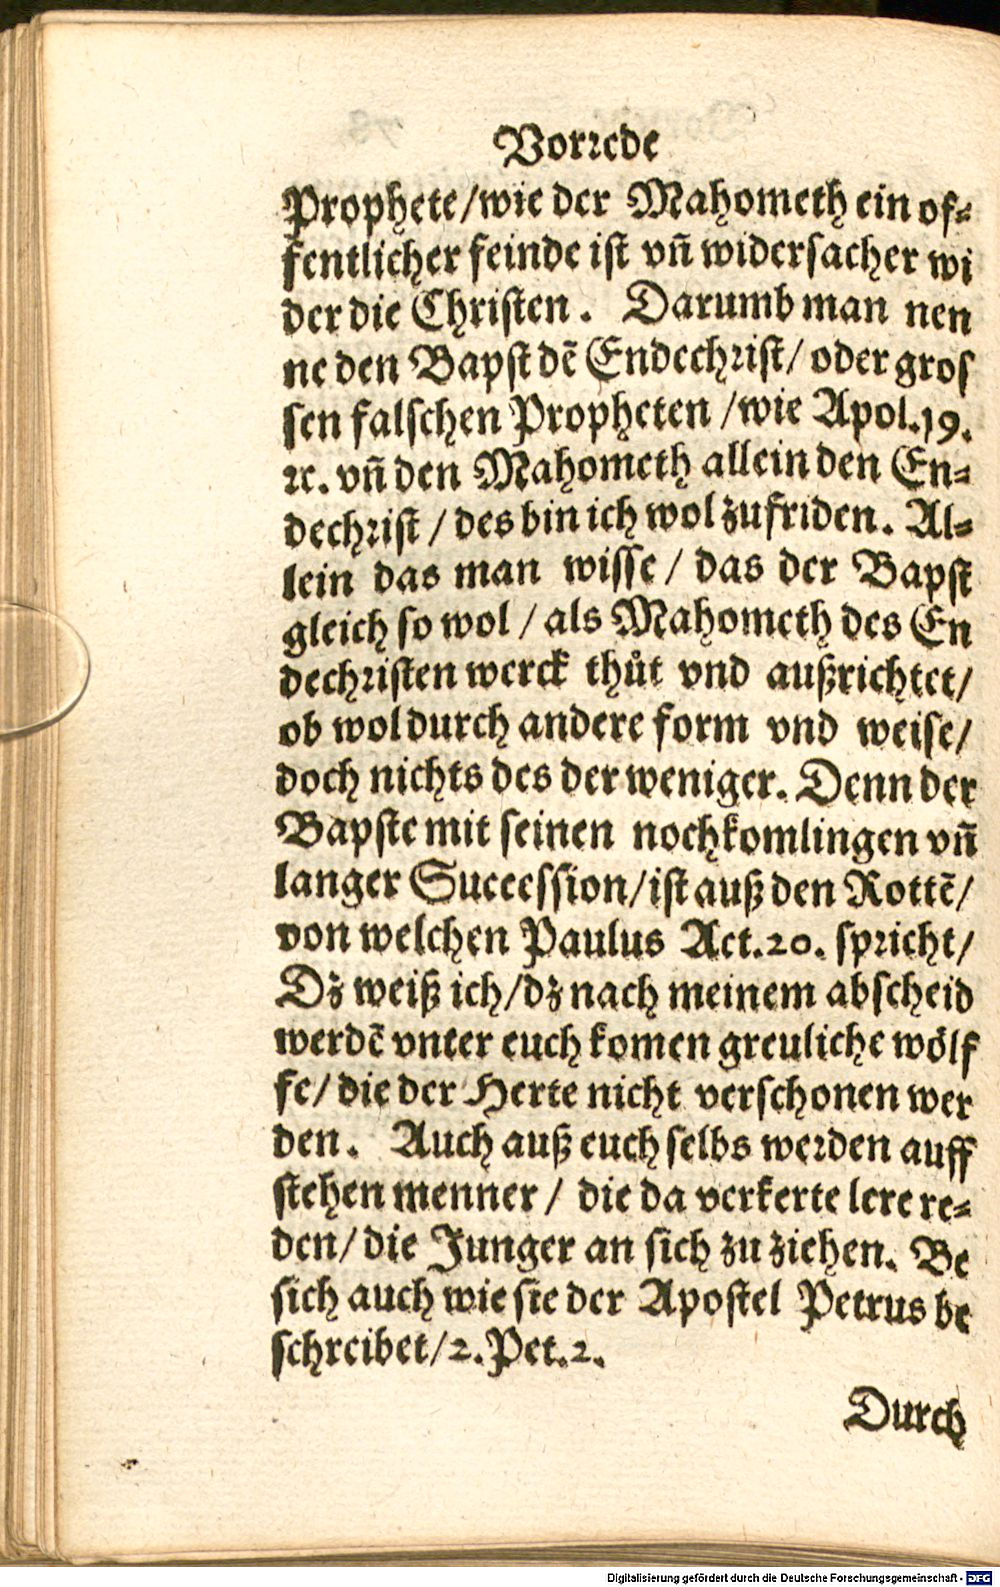 Vorꝛede
Prophete/wie der Mahometh ein of⸗
fentlicher feinde iſt vñ widerſacher wi
der die Chriſten. Darumb man nen
ne den Bapſt dē Endechꝛiſt/ oder groſ
ſen falſchen Propheten /wie Apol.19.
ꝛc. vñ den Mahometh allein den En⸗
dechꝛiſt / des bin ich wol zufriden. Al⸗
lein das man wiſſe / das der Bapſt
gleich ſo wol / als Mahometh des En
dechꝛiſten werck thůt vnd außrichtet/
ob wol durch andere form vnd weiſe/
doch nichts des der weniger. Denn der
Bapſte mit ſeinen nochkomlingen vñ
langer Succeſſion/iſt auß den Rottē/
von welchen Paulus Act.20. ſpꝛicht/
Dz weiß ich/dz nach meinem abſcheid
werdē vnter euch komen greuliche wölf
fe/ die der Herte nicht verſchonen wer
den. Auch auß euch ſelbs weꝛden auff
ſtehen menner / die da verkerte lere re⸗
den/ die Junger an ſich zu ziehen. Be
ſich auch wie ſie der Apoſtel Petrus be
ſchreibet/2.Pet.2.
Durch
Digitalisierung gefördert durch die Deutsche Forschungsgemeinschaft - DFG